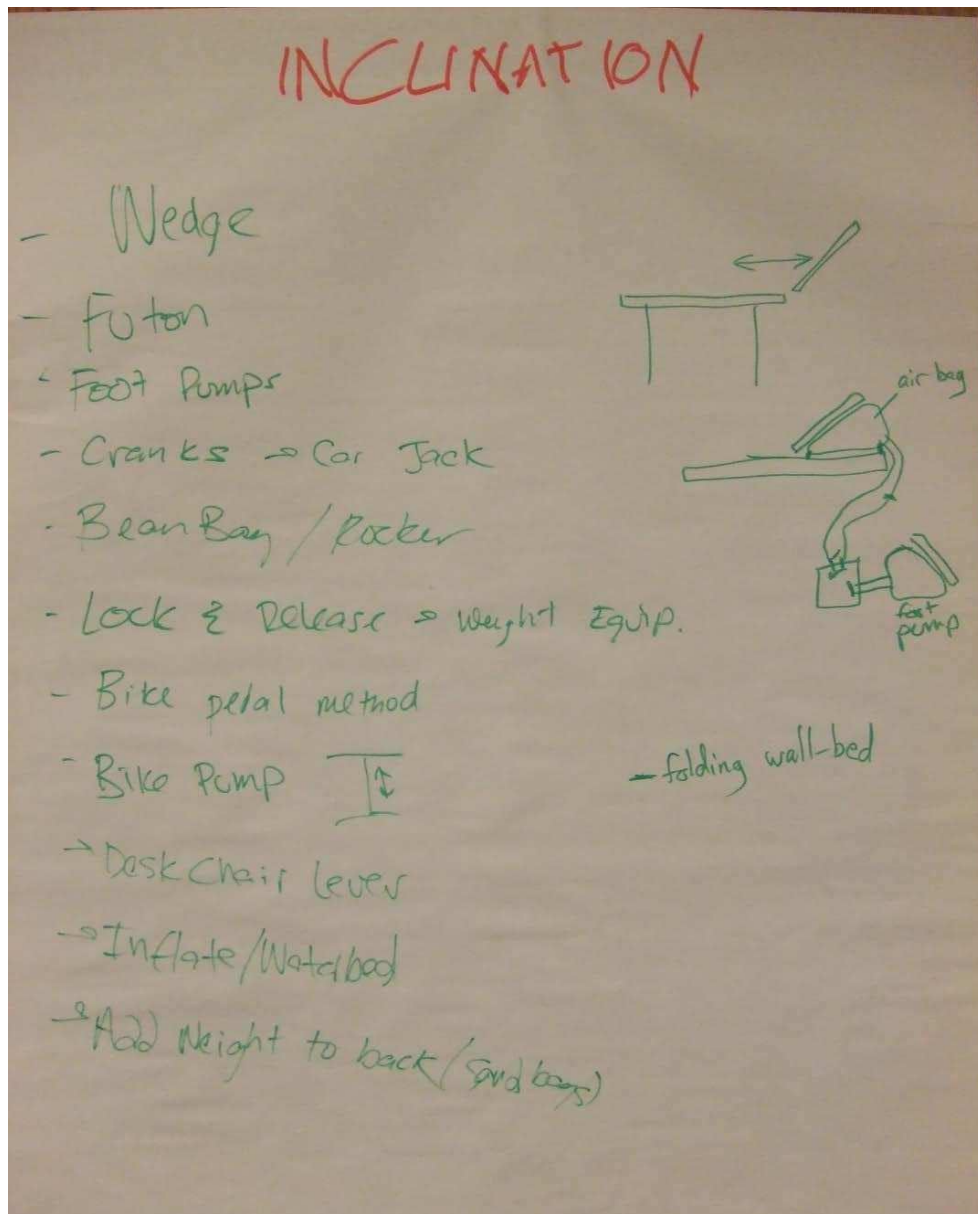 INCLINATION
- Wedge
- Futon
- Foot Pumps
- Cranks → Car Jack
- Bean Bag / Rocker
- Lock & Release → Weight Equip.
- Bike pedal method
- Bike Pump
→ Desk Chair Lever
→ Inflate/Waterbed
→ Add Weight to back (Sand bags)
air bag
foot
pump
- folding wall-bed